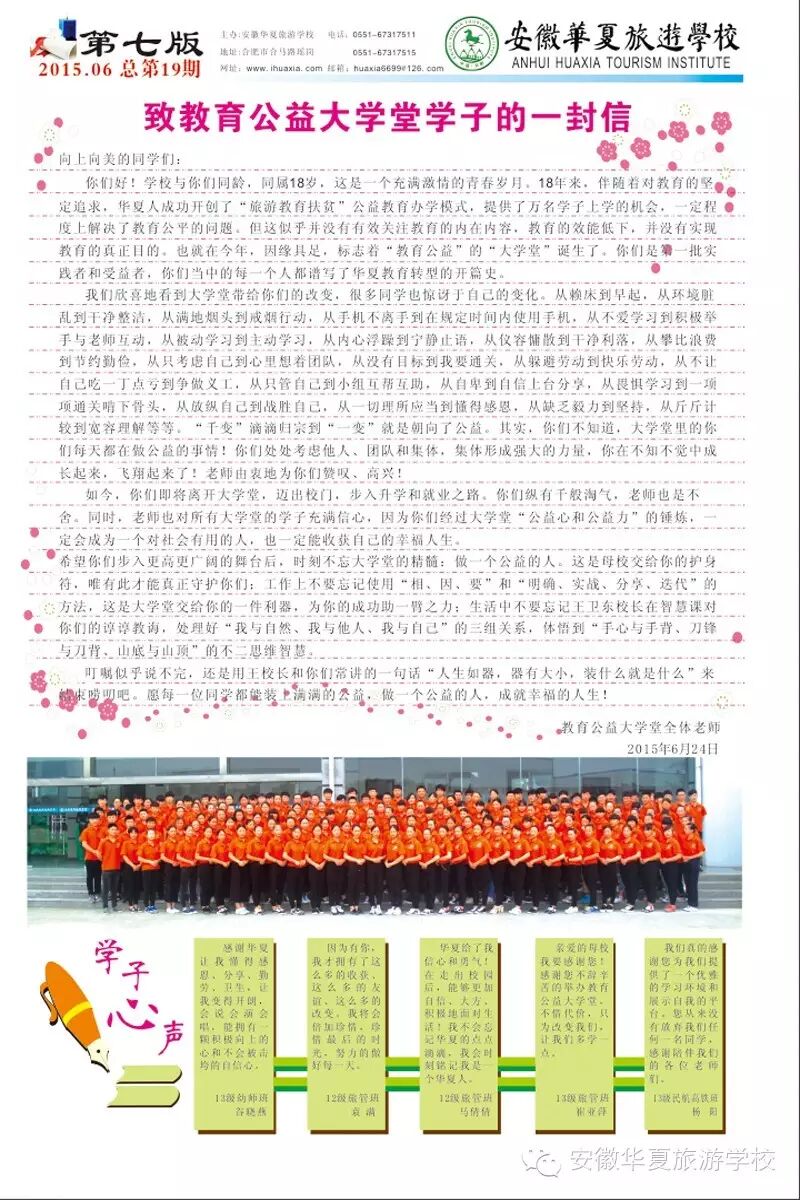 第七版
2015.06 总第19期
主办:安徽华夏旅游学校 电话: 0551-67317511
地址:合肥市合马路瑶岗 0551-67317515
网址: www.ihuaxia.com 邮箱: huaxia6699@126.com
安徽華夏旅遊學校
ANHUI HUAXIA TOURISM INSTITUTE
致教育公益大学堂学子的一封信
向上向美的同学们:
你们好!学校与你们同龄,同属18岁,这是一个充满激情的青春岁月。18年来,伴随着对教育的坚
定追求,华夏人成功开创了“旅游教育扶贫”公益教育办学模式,提供了万名学子上学的机会,一定程
度上解决了教育公平的问题。但这似乎并没有有效关注教育的内在内容,教育的效能低下,并没有实现
教育的真正目的。也就在今年,因缘具足,标志着“教育公益”的“大学堂”诞生了。你们是第一批实
践者和受益者,你们当中的每一个人都谱写了华夏教育转型的开篇史。
我们欣喜地看到大学堂带给你们的改变,很多同学也惊讶于自己的变化。从赖床到早起,从环境脏
乱到干净整洁,从满地烟头到戒烟行动,从手机不离手到在规定时间内使用手机,从不爱学习到积极举
手与老师互动,从被动学习到主动学习,从内心浮躁到宁静止语,从仪容慵散到干净利落,从攀比浪费
到节约勤俭,从只考虑自己到心里想着团队,从没有目标到我要通关,从躲避劳动到快乐劳动,从不让
自己吃一丁点亏到争做义工,从只管自己到小组互帮互助,从自卑到自信上台分享,从畏惧学习到一项
项通关啃下骨头,从放纵自己到战胜自己,从一切理所应当到懂得感恩,从缺乏毅力到坚持,从斤斤计
较到宽容理解等等。“千变”滴滴归宗到“一变”就是朝向了公益。其实,你们不知道,大学堂里的你
们每天都在做公益的事情!你们处处考虑他人、团队和集体,集体形成强大的力量,你在不知不觉中成
长起来,飞翔起来了!老师由衷地为你们赞叹、高兴!
如今,你们即将离开大学堂,迈出校门,步入升学和就业之路。你们纵有千般淘气,老师也是不
舍。同时,老师也对所有大学堂的学子充满信心,因为你们经过大学堂“公益心和公益力”的锤炼,一
定会成为一个对社会有用的人,也一定能收获自己的幸福人生。
希望你们步入更高更广阔的舞台后,时刻不忘大学堂的精髓:做一个公益的人。这是母校交给你的护身
符,唯有此才能真正守护你们;工作上不要忘记使用“相、因、要”和“明确、实战、分享、迭代”的
方法,这是大学堂交给你的一件利器,为你的成功助一臂之力;生活中不要忘记王卫东校长在智慧课对
你们的谆谆教诲,处理好“我与自然、我与他人、我与自己”的三组关系,体悟到“手心与手背、刀锋
与刀背、山底与山顶”的不二思维智慧。
叮嘱似乎说不完,还是用王校长和你们常讲的一句话“人生如器,器有大小,装什么就是什么”来
结束唠叨吧。愿每一位同学都能装上满满的公益,做一个公益的人,成就幸福的人生!
教育公益大学堂全体老师
2015年6月24日
学子心声
感谢华夏
让我懂得感
恩、分享、勤
劳、卫生,让
我变得开朗,
会说会演会
唱,能拥有一
颗积极向上的
心和不会被击
垮的自信心。
13级幼师班
谷晓燕
因为有你,
我才拥有了这
么多的收获、
这么多的友
谊、这么多的
改变。我将会
倍加珍惜,珍
惜最后的时
光,努力的做
好每一天。
12级旅管班
袁满
华夏给了我
信心和勇气!
在走出校园
后,能够更加
自信、大方,
积极地面对生
活!我不会忘
记华夏的点点
滴滴,我会时
刻铭记我是一
个华夏人。
12级旅管班
马倩倩
亲爱的母校
我要感谢您!
感谢您不辞辛
苦的举办教育
公益大学堂,
不惜代价,只
为改变我们,
让我们多学一
点。
13级旅管班
崔亚萍
我们真的感
谢您为我们提
供了一个优雅
的学习环境和
展示自我的平
台。您从来没
有放弃我们任
何一名同学,
感谢陪伴我们
的各位老师
们。
13级民航高铁班
杨阳
安徽华夏旅游学校